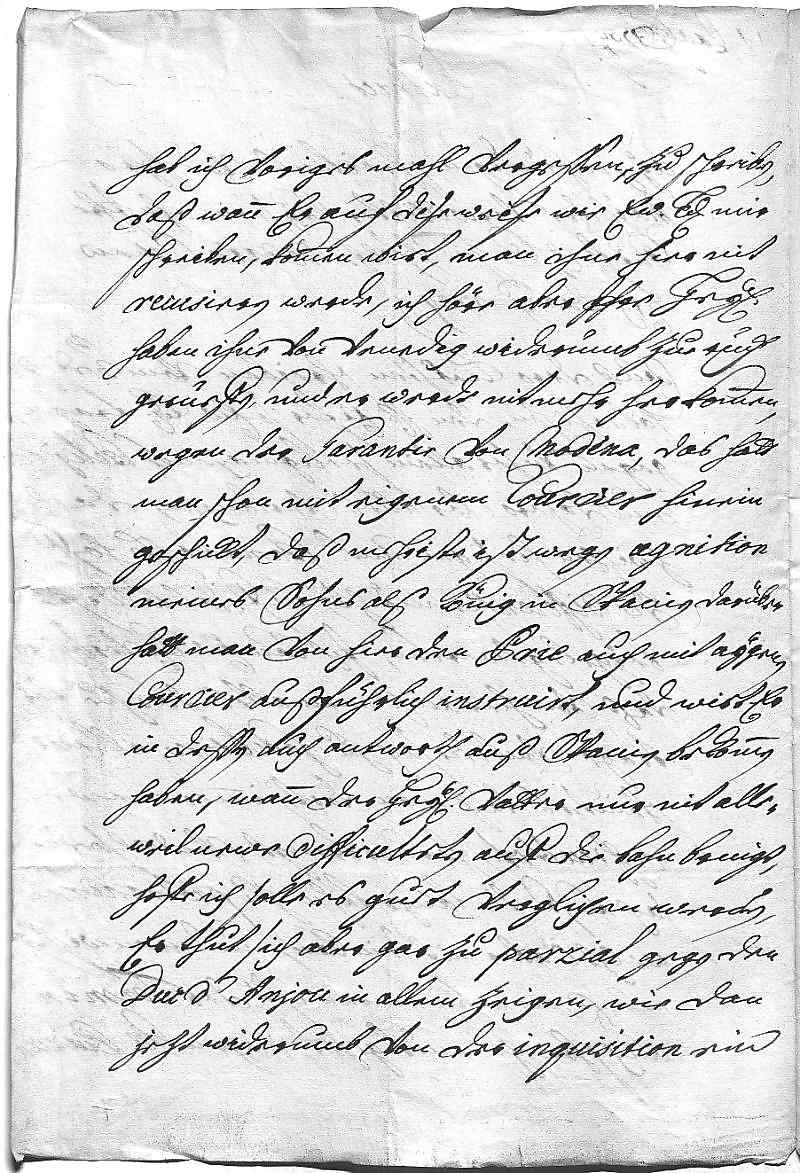 hab ich voriges mahl vergessen, zu schreiben,
daß wan̄ Er auf dise weise wie Ew. Ld mir
schreiben, komen wirt, man ihne hier nit
recusiren werde, ich höre aber Ihre
haben ihne von Venedig widerumb zuruckh
geruefft, und er werde nit mehr her kommen,
wegen der Garantie von Modena, das hatt
man schon mit eigenem Courrier hinein
geschickt, das meiste ist wegen agnition
meines Sohns als König in Spanien darüber
hatt man von hier den Prie auch mit aigen
Courrier außführlich instruirt, und wirt Er
in dessen auch antworth auß Spanien bekomen
haben, wan̄ der heyl. Vatter nur nit alle
weil newe difficulteten auff die bahn bringt,
hoffe ich solle es guet verglichen werden,
Er thut sich aber gar zu parzial gegen den
Duc d'Anjou in allem zeigen, wie dan
jetzt widerumb von der inquisition ein